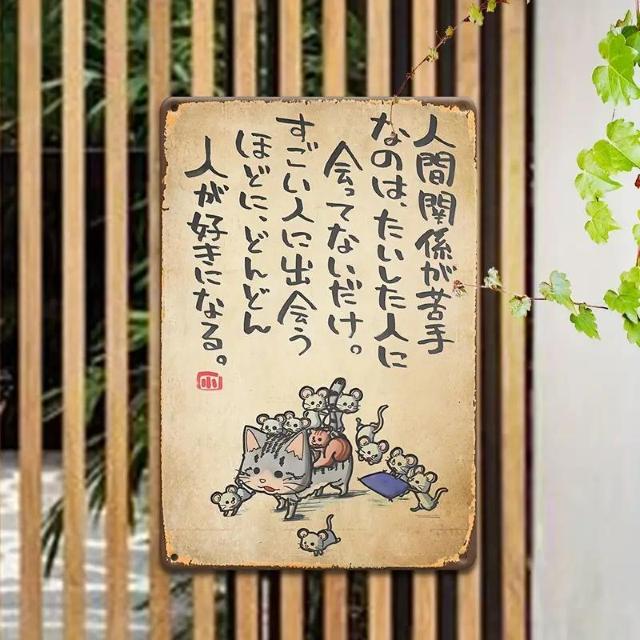 人間関係が苦手
なのは、たいした人に
会ってないだけ。
すごい人に出会う
ほどに、どんどん
人が好きになる。